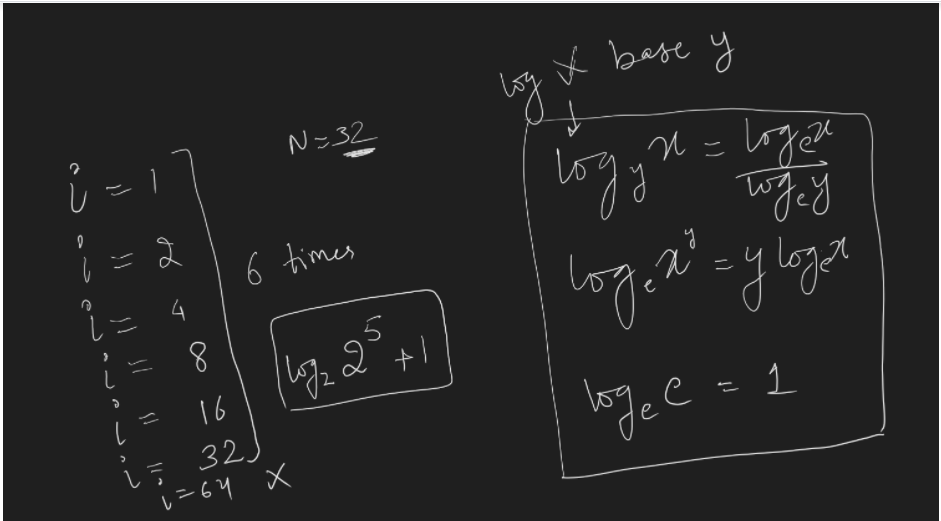 N=32
i = 1
i = 2
i = 4
i = 8
i = 16
i = 32
i=64 X
6 times
log₂ 2⁵ + 1
log x base y
log_y x = log_e x / log_e y
log_e x^y = y log_e x
log_e e = 1